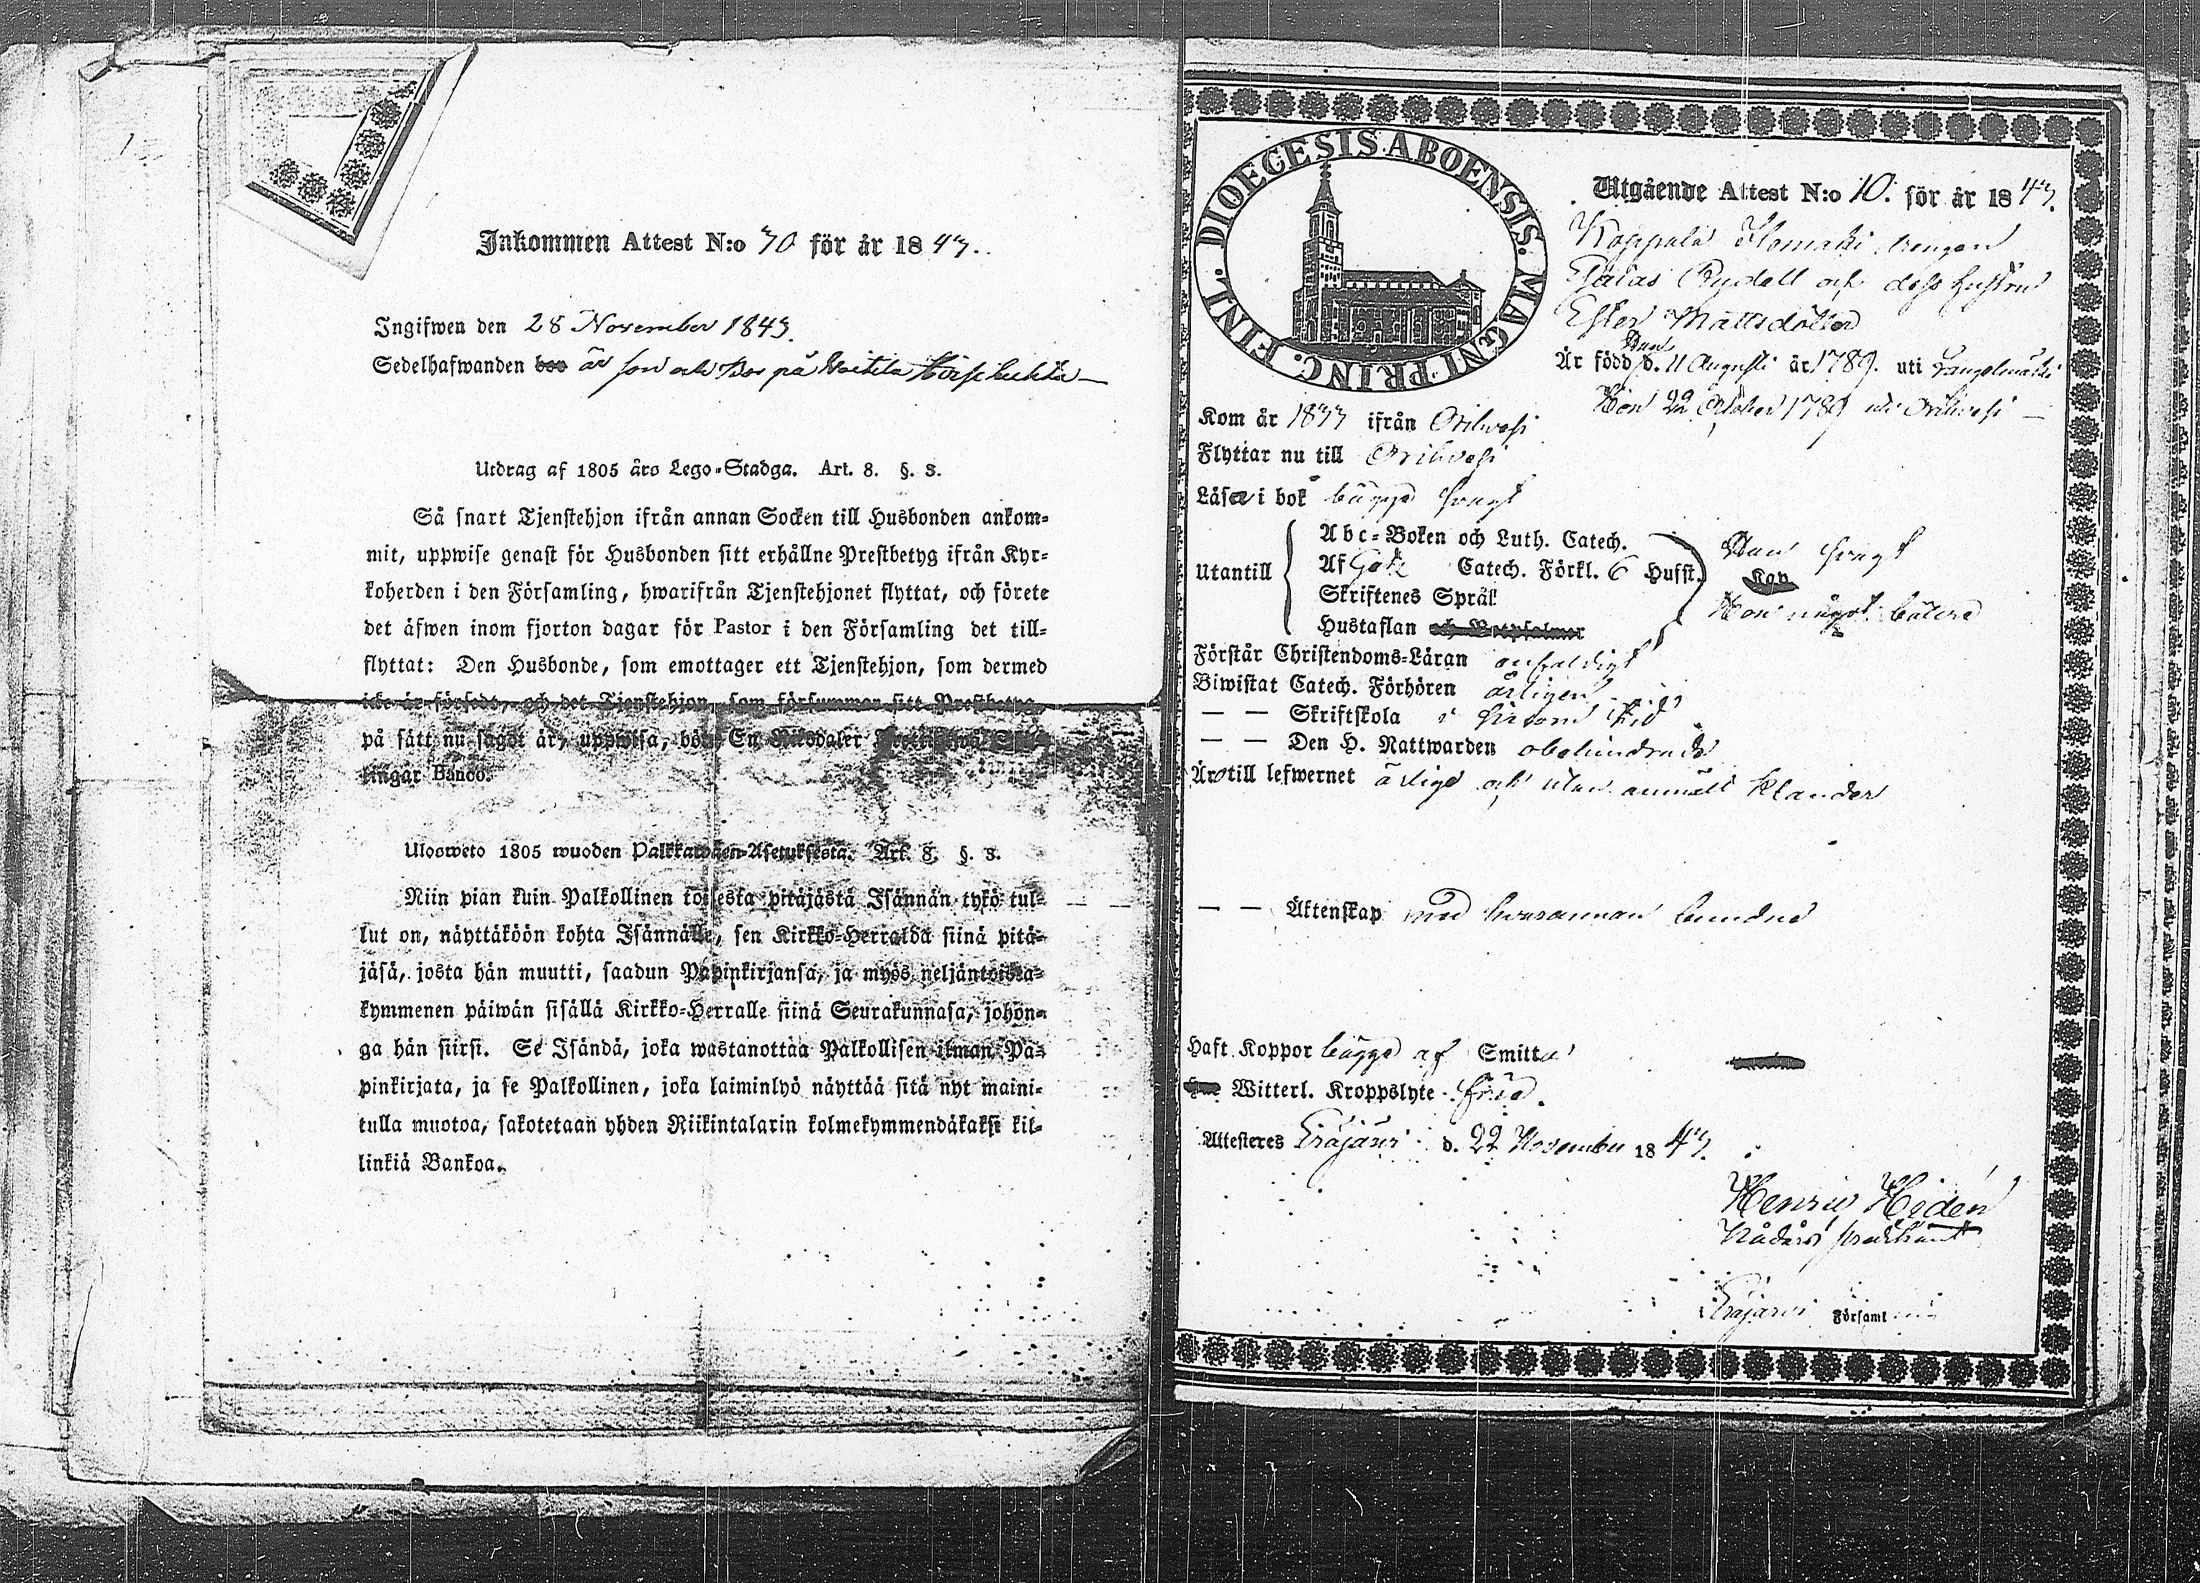 Inkommen Attest N:o 70 för år 1843.
Ingifwen den 28 November 1843.
Sedelhafwanden är son och Bor på
Utdrag af 1805 års Lego-Stadga. Art. 8. §. 3.
Så snart Tjenstehjon ifrån annan Socken till Husbonden ankom-
mit, uppwise genast för Husbonden sitt erhållne Prestbetyg ifrån Kyr-
koherden i den Församling, hwarifrån Tjenstehjonet flyttat, och förete
det äfwen inom fjorton dagar för Pastor i den Församling det till-
flyttat: Den Husbonde, som emottager ett Tjenstehjon, som dermed
icke är försedt, och det Tjenstehjon, som försummar sitt Prestbetyg,
på sätt nu sagdt är, uppwisa, böte En Riksdaler
lingar Banco.
Ulosweto 1805 wuoden Palkkawäen-Asetuksesta. Art. 8. §. 3.
Niin pian kuin Palkollinen toisesta pitäjästä Isännän tykö tul-
lut on, näyttäköön kohta Isännälle, sen Kirkko-Herralda siinä pitä-
jäsä, josta hän muutti, saadun Papinkirjansa, ja myös neljäntoista-
kymmenen päiwän sisällä Kirkko-Herralle siinä Seurakunnasa, johon-
ga hän siirsi. Se Isändä, joka wastanottaa Palkollisen ilman Pa-
pinkirjata, ja se Palkollinen, joka laiminlyö näyttää sitä nyt maini-
tulla muotoa, sakotetaan yhden Riikintalarin kolmekymmendäkaksi kil-
linkiä Bankoa.
DIOECESIS ABOENSIS. MAGNI PRINC. FINL.
Utgående Attest N:o 10. för år 1843.
Koppala drengen
Rydell och dess hustru
Ester Mattsdotter
Är född Han d. 11 Augusti år 1789. uti Längelmäki
Hon 22 October 1789 uti Orihvesi
Kom år 1833 ifrån Orihvesi
Flyttar nu till Orihvesi
Läser i bok bägge svagt
Utantill
Abc-Boken och Luth. Catech.
Af Catech. Förkl. 6 Hufst.
Skriftenes Språk
Hustaflan och Botpsalmer
Han svagt
Hon något bättre
Förstår Christendoms-Läran enfaldigt
Biwistat Catech. Förhören årligen
— — Skriftskola i sin tid
— — Den H. Nattwarden obehindrade
Äro till lefwernet ärliga och utan anmält klander
— — Äktenskap med hvarannan bundne
Haft Koppor bägge af Smitta
Witterl. Kroppslyte fria.
Attesteres Eräjärvi d. 22 November 1843.
Henric Hedén
Nådårs predikant
Eräjärvi Församl